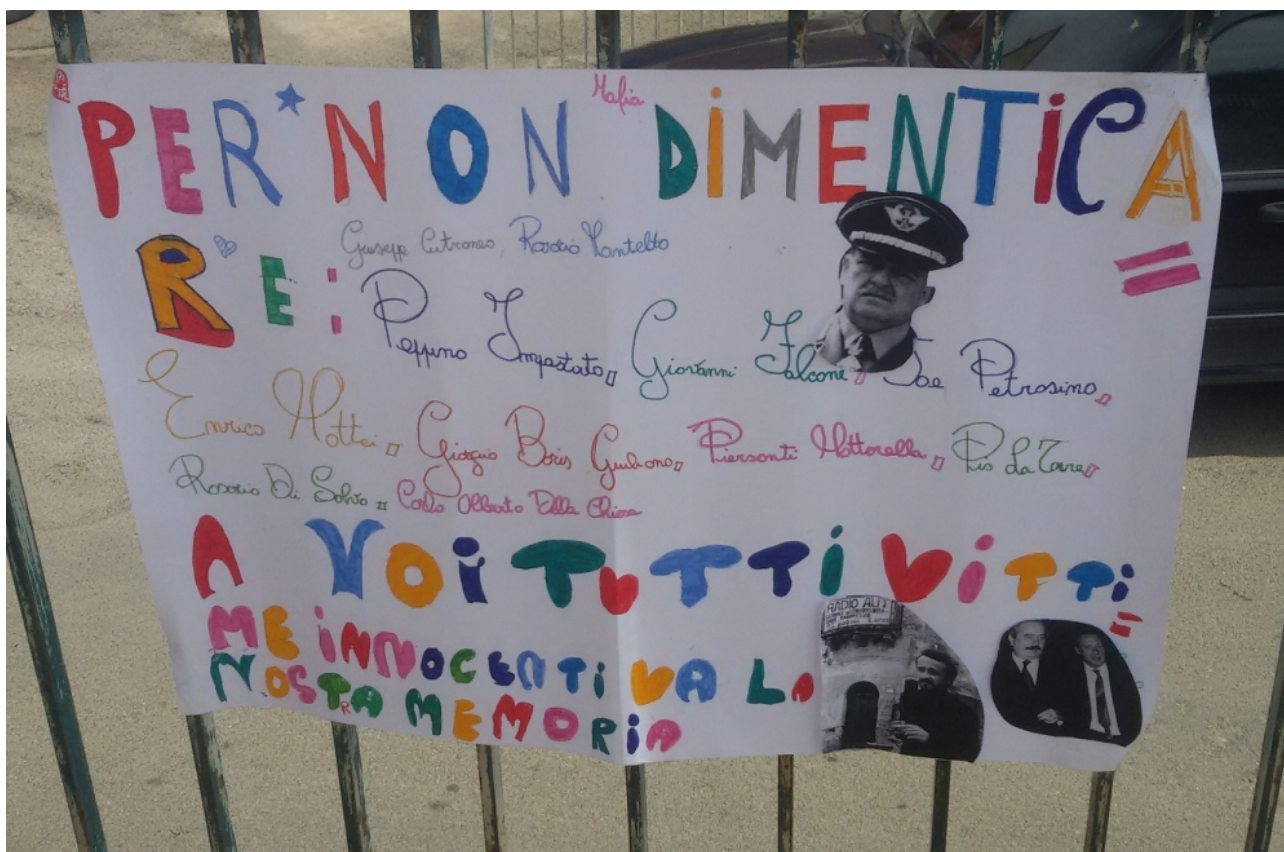 Mafia
PER NON DIMENTICA=
RE:
Giusepp Cutroneo, Rosario Montalto
Peppino Impastato, Giovanni Falcone, Joe Petrosino,
Enrico Mattei, Giorgio Boris Giuliano, Piersanti Mattarella, Pio La Torre,
Rosario Di Salvo, Carlo Alberto Dalla Chiesa
A VOI TUTTI VITTI=
ME INNOCENTI VA LA
NOSTRA MEMORIA
RADIO AUT